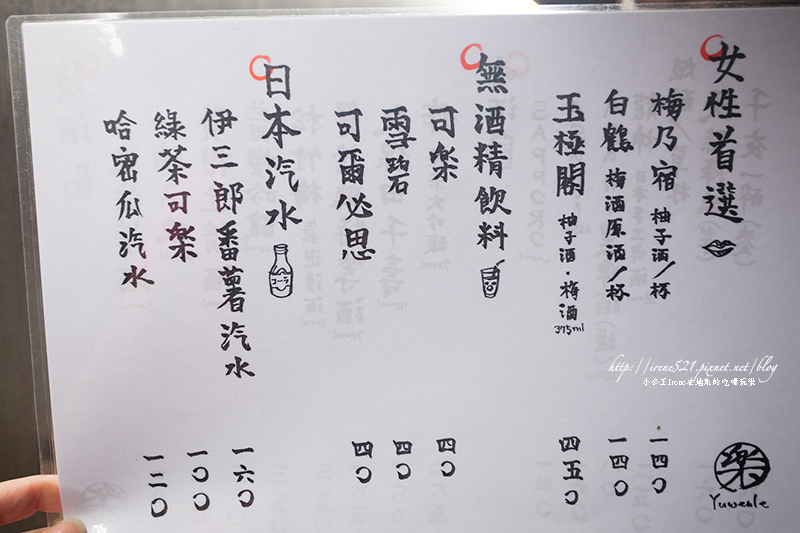 女性首選
梅乃宿 柚子酒/杯 一四〇
白鶴 梅酒原酒/杯 一四〇
玉極閣 柚子酒・梅酒 375ml 四五〇
無酒精飲料
可樂 四〇
雪碧 四〇
可爾必思 四〇
日本汽水
コーラ
伊三郎番薯汽水 一六〇
綠茶可樂 一〇〇
哈密瓜汽水 一二〇
樂
Yuwenle
http://irene521.pixnet.net/blog